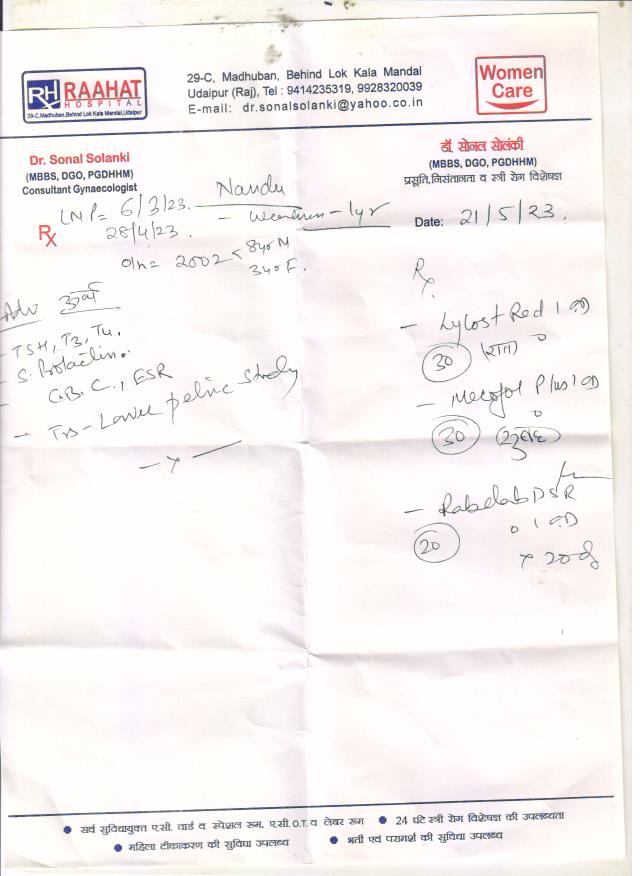 RH RAAHAT
HOSPITAL
29-C, Madhuban, Behind Lok Kala Mandal, Udaipur
29-C, Madhuban, Behind Lok Kala Mandal
Udaipur (Raj), Tel : 9414235319, 9928320039
E-mail: dr.sonalsolanki@yahoo.co.in
Women
Care
Dr. Sonal Solanki
(MBBS, DGO, PGDHHM)
Consultant Gynaecologist
डॉ. सोनल सोलंकी
(MBBS, DGO, PGDHHM)
प्रसूति, निसंतानता व स्त्री रोग विशेषज्ञ
Date: 21/5/23.
Nandu
LMP = 6/3/23.
28/4/23.
- 1yr
Rx
O/h = 2002 < 8yo M
3yo F.
Adv
- TSH, T3, T4.
- S. Prolactin.
C.B.C., ESR
- Tvs - Lower pelvic study
- x -
Rx
- Lycost Red 1 OD
30 (रात)
- Mecofol Plus 1 OD
30 (सुबह)
- Rabelab DSR
1 OD
20 x 20 d
सर्व सुविधायुक्त ए.सी. वार्ड व स्पेशल रूम, ए.सी.O.T. व लेबर रूम
24 घंटे स्त्री रोग विशेषज्ञ की उपलब्धता
महिला टीकाकरण की सुविधा उपलब्ध
भर्ती एवं परामर्श की सुविधा उपलब्ध